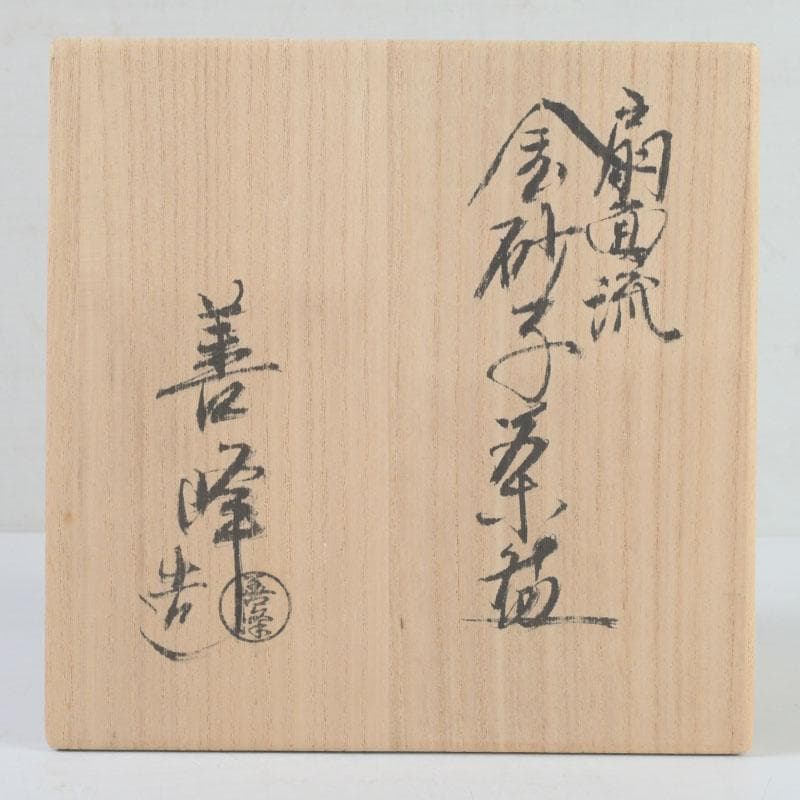 扇面流
金砂子茶碗
善峰造
善峰